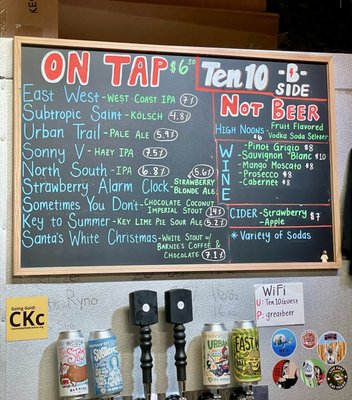 ON TAP $6.50
East West - WEST COAST IPA 7%
Subtropic Saint - KÖLSCH 4.8%
Urban Trail - PALE ALE 5.9%
Sonny V - HAZY IPA 7.5%
North South - IPA 6.8%
Strawberry Alarm Clock - STRAWBERRY BLONDE ALE 5.6%
Sometimes You Don't - CHOCOLATE COCONUT
IMPERIAL STOUT 14%
Key to Summer - KEY LIME PIE SOUR ALE 5.2%
Santa's White Christmas - WHITE STOUT w/
BARNIE'S COFFEE &
CHOCOLATE 7.1%
Ten10 -B-
SIDE
NOT BEER
HIGH NOONS - Fruit Flavored
$6 Vodka Soda Seltzer
WINE
- Pinot Grigio $8
- Sauvignon Blanc $10
- Mango Moscato $8
- Prosecco $8
- Cabernet $8
CIDER - Strawberry $7
- Apple
* Variety of Sodas
Going Going!
CKc
WiFi
U: Ten10Guest
P: greatbeer
URBAN
EAST